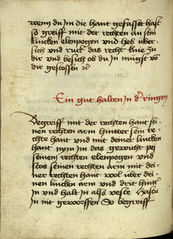 wenn du in die hant gefasset hast
so greiff mit der rechten arm sin
lincken elenpogen und heb uber
sich und ruck das recht
dir und besich ob du in mügst
die gescossen
Ein gut halten in d ringen
Begreiff mit der rechten hant sei
nen rechten arm hinter sein re
chte hant und mit deiner lincken
hant nym in das gewicht pei
seinem rechten elenpogen und
stos seinen rechten arm mit dei
ner rechten hant wol uber dei
nen lincken arm und
in und halt in also vest
in nit geworffen So begreiff